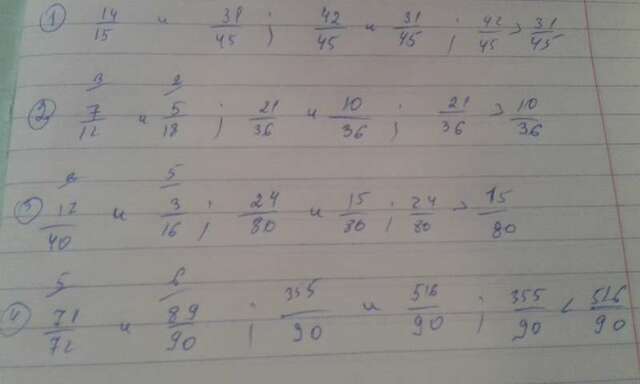 ① 14/15 и 31/45 ; 42/45 и 31/45 ; 42/45 > 31/45
3 2
② 7/12 и 5/18 ; 21/36 и 10/36 ; 21/36 > 10/36
5
③ 12/40 и 3/16 ; 24/80 и 15/80 ; 24/80 > 15/80
5 6
④ 71/72 и 89/90 ; 355/90 и 516/90 ; 355/90 < 516/90